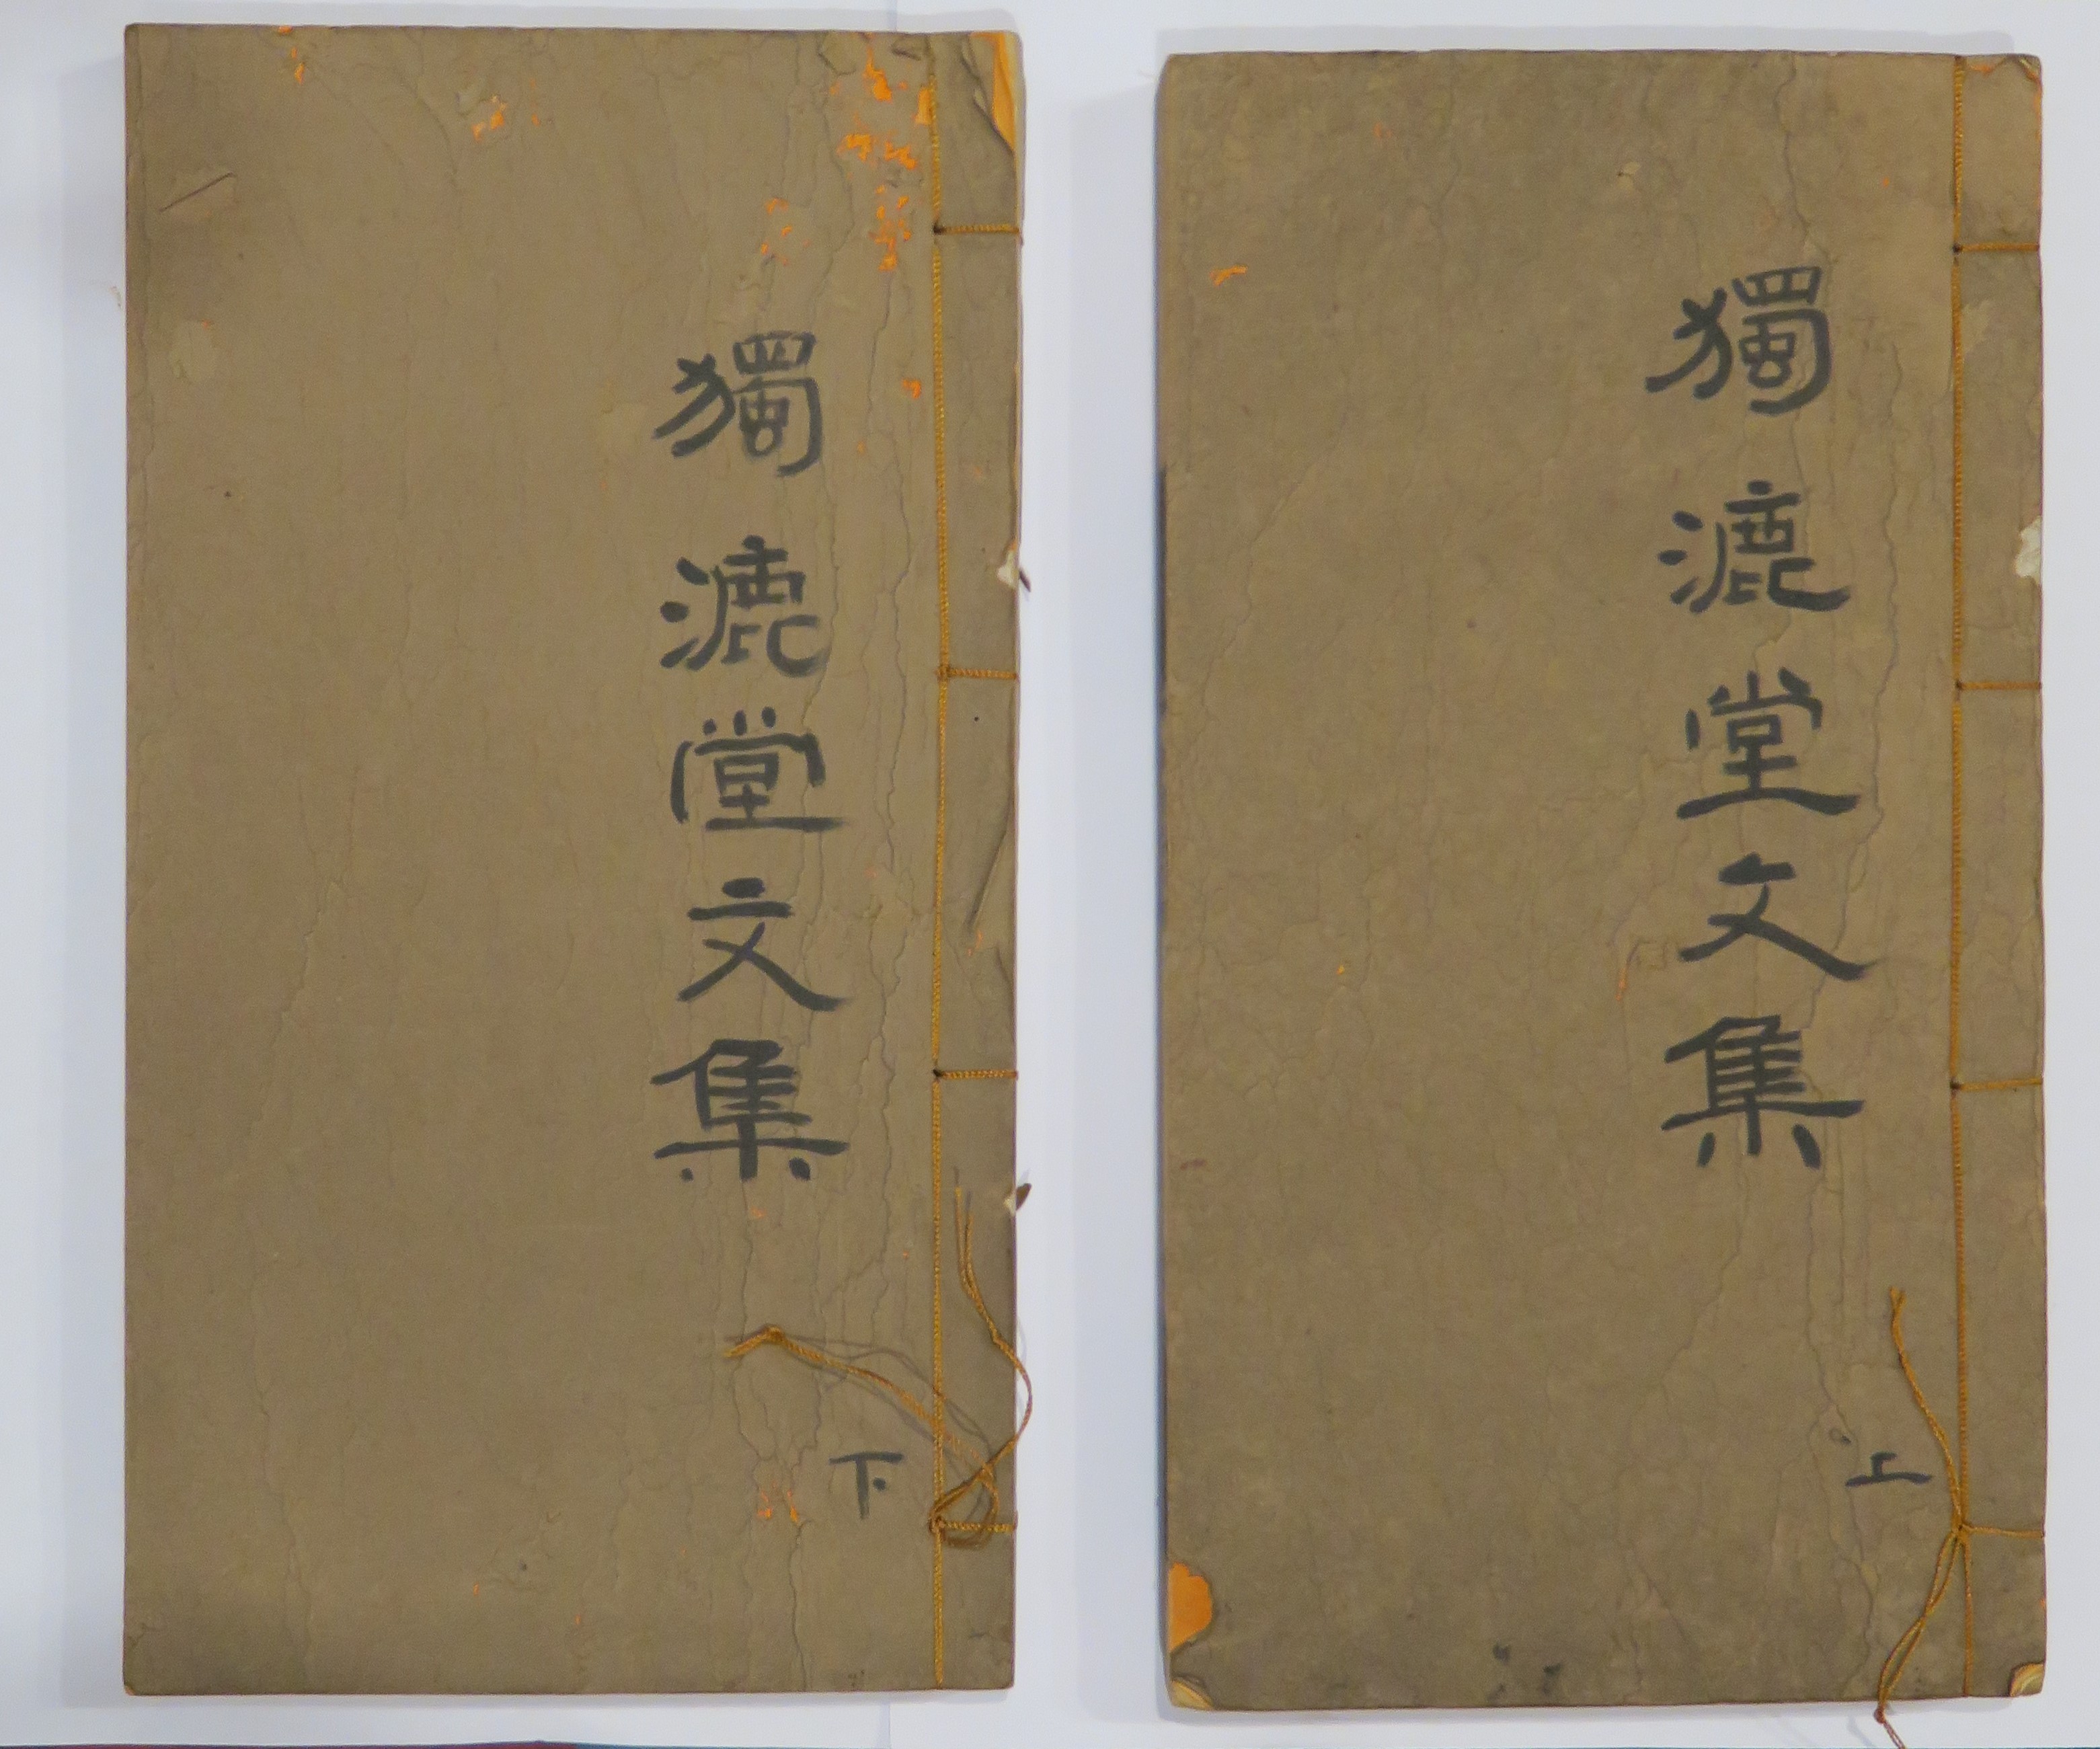 獨漉堂文集
上
獨漉堂文集
下